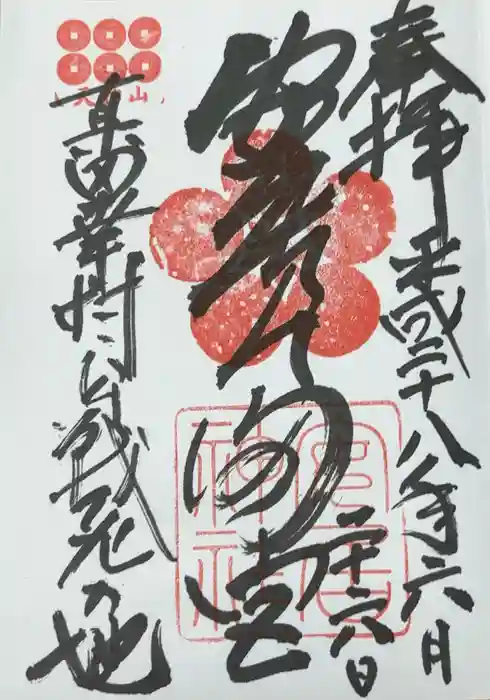 奉拝 平成二十八年六月
二十六日
安居天満宮
真田幸村公戦死地
安居
神社